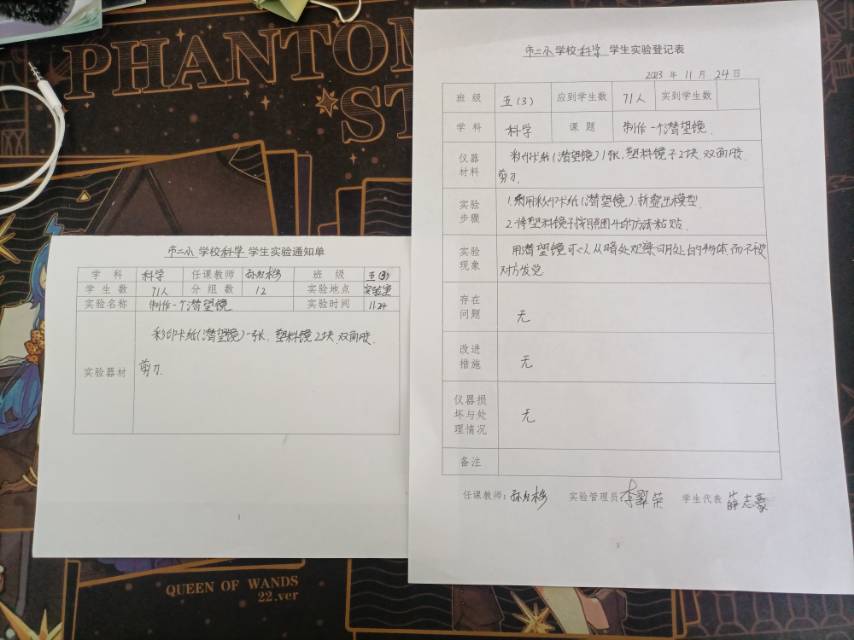 PHANTOM
ST
市二小 学校 科学 学生实验通知单
学 科 科学 任课教师 班 级 五(3)
学 生 数 71人 分 组 数 12 实验地点 实验室
实验名称 制作一个潜望镜 实验时间 11.24
实验器材
彩印卡纸(潜望镜)一张、塑料镜2块、双面胶、
剪刀.
市二小 学校 科学 学生实验登记表
2023 年 11 月 24 日
班 级 五(3) 应到学生数 71人 实到学生数
学 科 科学 课 题 制作一个潜望镜.
仪器材料
彩印卡纸(潜望镜)1张,塑料镜子2块、双面胶、
剪刀.
实验步骤
1.用彩印卡纸(潜望镜)折叠出模型.
2.将塑料镜子按照图中的方法粘贴.
实验现象
用潜望镜可以从暗处观察明处的物体而不被
对方发觉.
存在问题
无
改进措施
无
仪器损坏与处理情况
无
备注
任课教师: 实验管理员: 学生代表 薛志豪
QUEEN OF WANDS
22.ver